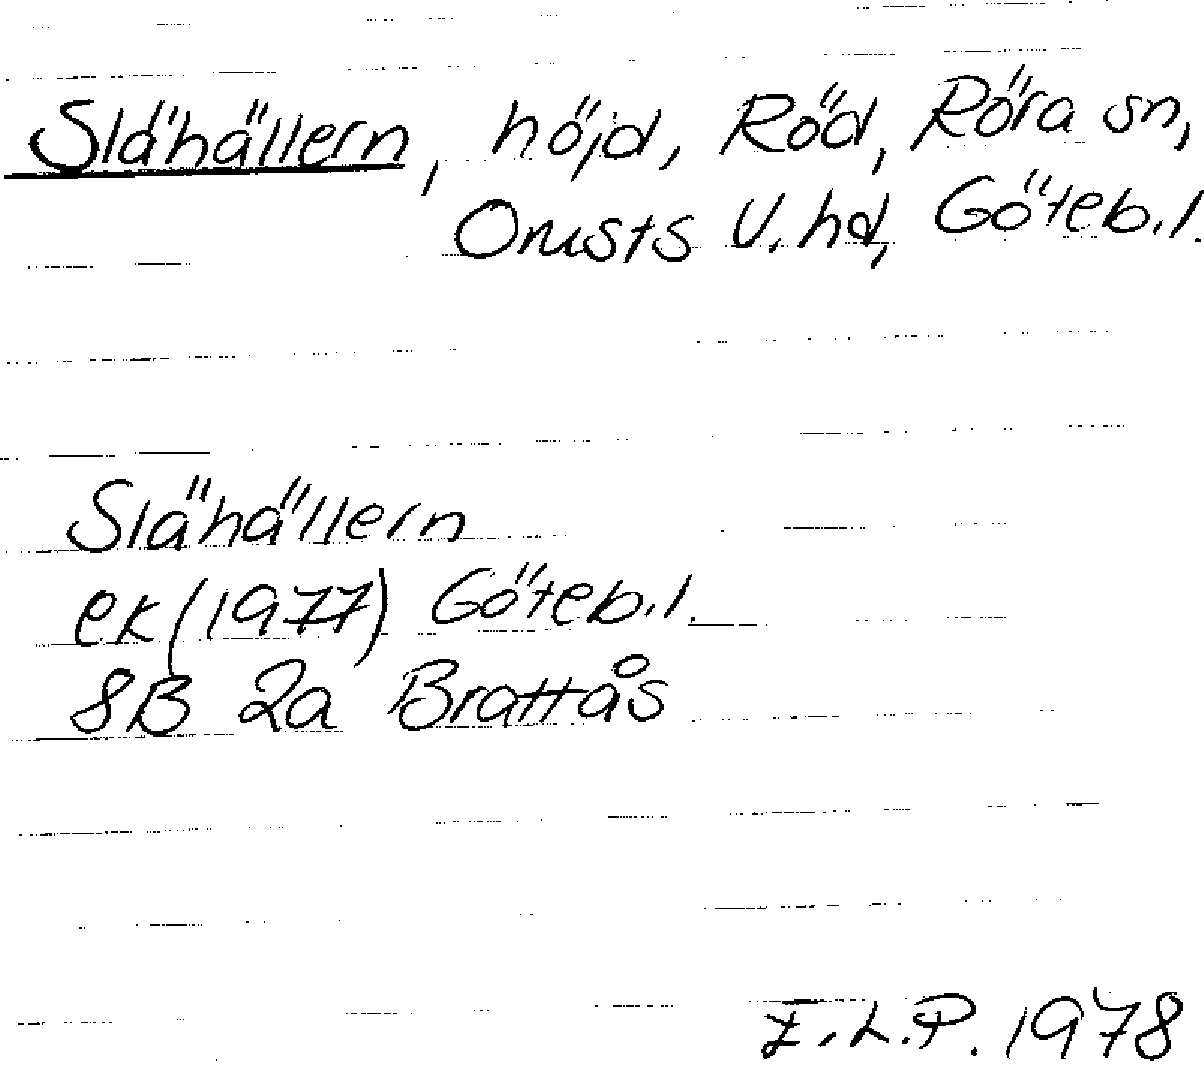 Slähällern, höjd, Röd, Röra sn,
Orusts V. hd, Göteb.l.
Slähällern
ek (1977) Göteb.l.
8B 2a Brattås
E.L.P. 1978